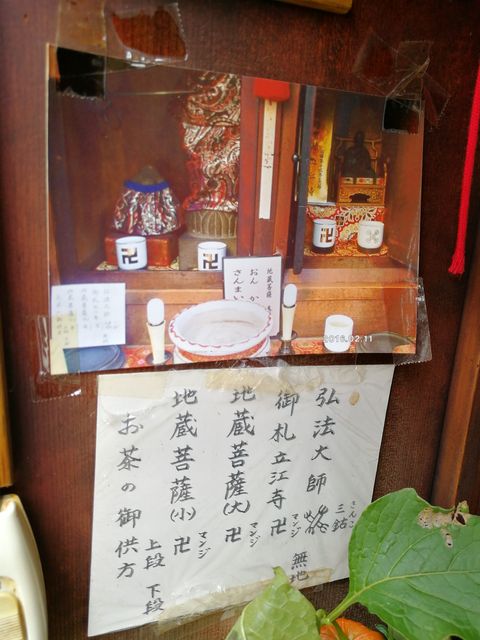 地蔵菩薩
おんか
さんまい
2016.02.11
弘法大師 三鈷 さんこ
御札立江寺 卍 マンジ 無地
地蔵菩薩(大) 卍 マンジ
地蔵菩薩(小) 卍 マンジ
お茶の御供方 上段 下段